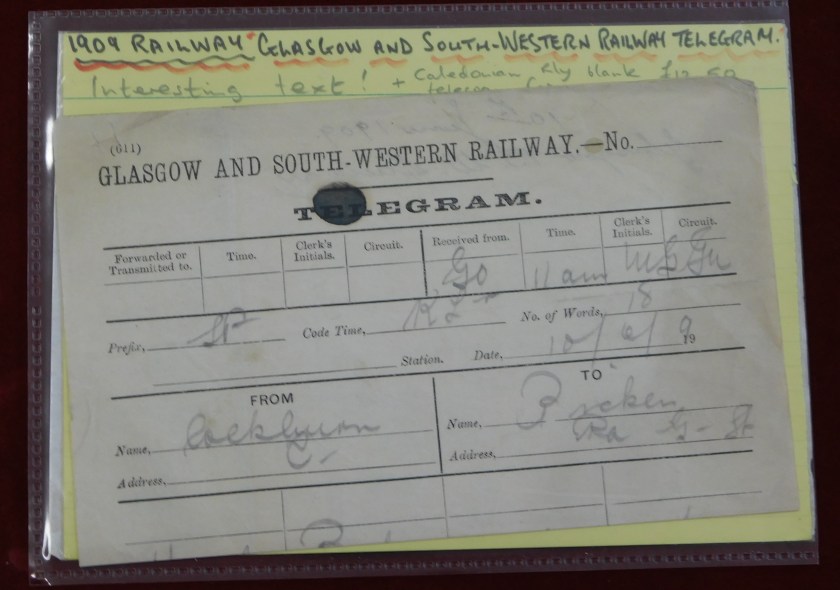 1909 RAILWAY GLASGOW AND SOUTH-WESTERN RAILWAY TELEGRAM.
Interesting text! + Caledonian Rly blank £12.50
(611)
GLASGOW AND SOUTH-WESTERN RAILWAY.—No.
TELEGRAM.
Forwarded or Transmitted to. Time. Clerk's Initials. Circuit. Received from. Time. Clerk's Initials. Circuit.
Go 11 am
Prefix, Code Time, No. of Words, 18
Station. Date, 10/6/9 19
FROM TO
Name, Cockburn Name,
Address, Address,